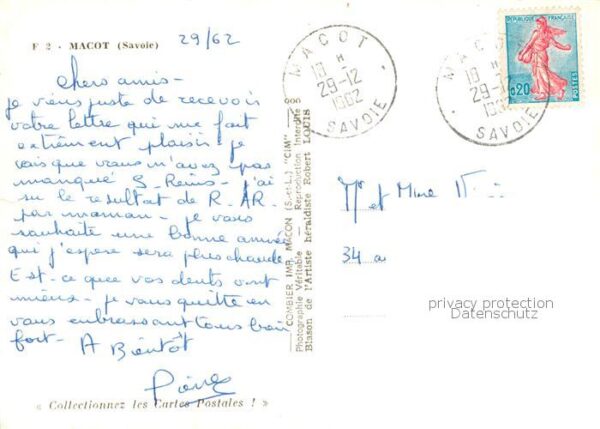 F 2 - MACOT (Savoie)
29/62
chers amis -
je viens juste de recevoir
votre lettre qui me fait
extrèment plaisir. je
vois que vous m'avez pas
manqué S. Reims - j'ai
su le resultat de R. AR.
par maman - je vous
souhaite une bonne année
qui j'espere sera plus chaude
Est-ce que vos dents vont
mieux - je vous quitte en
vous embrassant tous bien
fort -
A Bientôt
Pierre
« Collectionnez les Cartes Postales ! »
COMBIER IMP. MACON (S.-et-L.) "CIM"
Photographie Véritable - Reproduction Interdite
Blason de l'Artiste héraldiste Robert LOUIS
MACOT
18 H
29-12
1962
SAVOIE
MACOT
18 H
29-12
1962
SAVOIE
REPUBLIQUE FRANÇAISE
0,20
POSTES
Mr et Mme
34 a
privacy protection
Datenschutz